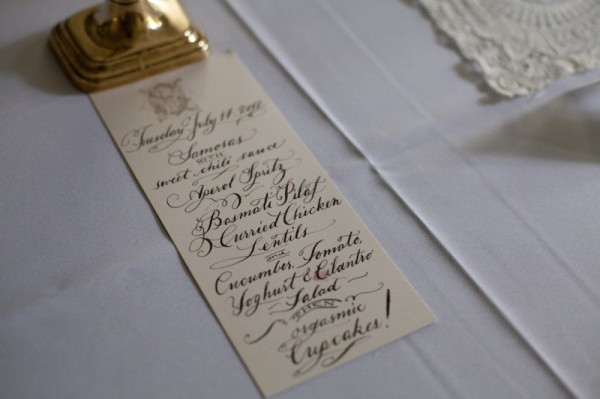 Tuesday July 17. 2012
Samosas
WITH
sweet chili sauce
Aperol Spritz
Basmati Pilaf
Curried Chicken
Lentils
and
Cucumber, Tomato,
Yoghurt & Cilantro
Salad
THEN
orgasmic
Cupcakes!